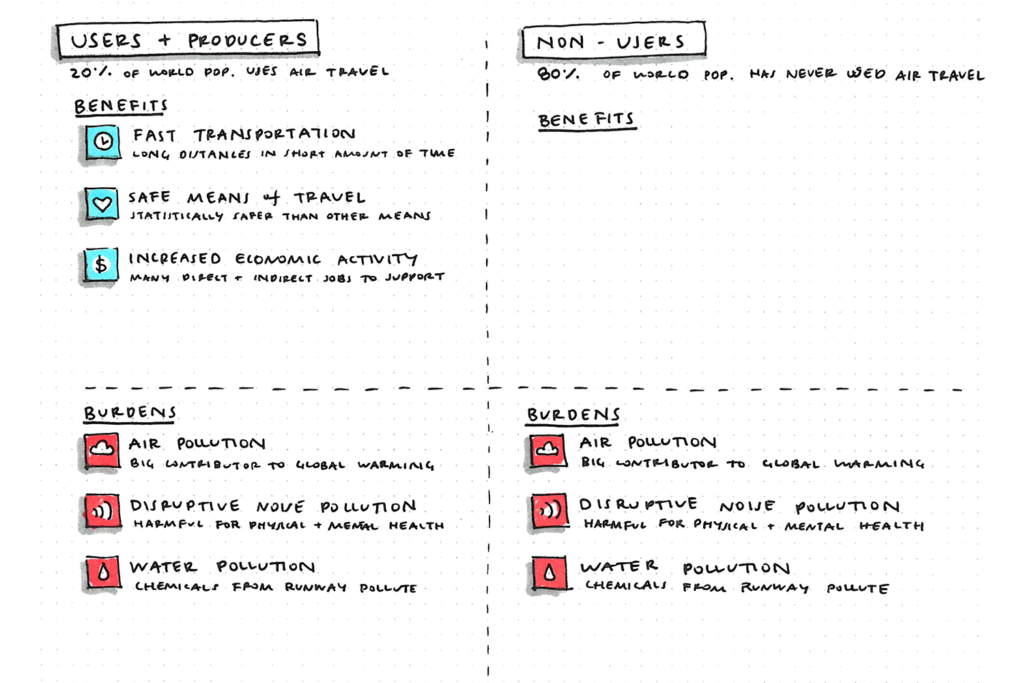 USERS + PRODUCERS
20% OF WORLD POP. USES AIR TRAVEL
BENEFITS
FAST TRANSPORTATION
LONG DISTANCES IN SHORT AMOUNT OF TIME
SAFE MEANS of TRAVEL
STATISTICALLY SAFER THAN OTHER MEANS
$
INCREASED ECONOMIC ACTIVITY
MANY DIRECT + INDIRECT JOBS TO SUPPORT
NON - USERS
80% OF WORLD POP. HAS NEVER USED AIR TRAVEL
BENEFITS
BURDENS
AIR POLLUTION
BIG CONTRIBUTOR TO GLOBAL WARMING
DISRUPTIVE NOISE POLLUTION
HARMFUL FOR PHYSICAL + MENTAL HEALTH
WATER POLLUTION
CHEMICALS FROM RUNWAY POLLUTE
BURDENS
AIR POLLUTION
BIG CONTRIBUTOR TO GLOBAL WARMING
DISRUPTIVE NOISE POLLUTION
HARMFUL FOR PHYSICAL + MENTAL HEALTH
WATER POLLUTION
CHEMICALS FROM RUNWAY POLLUTE